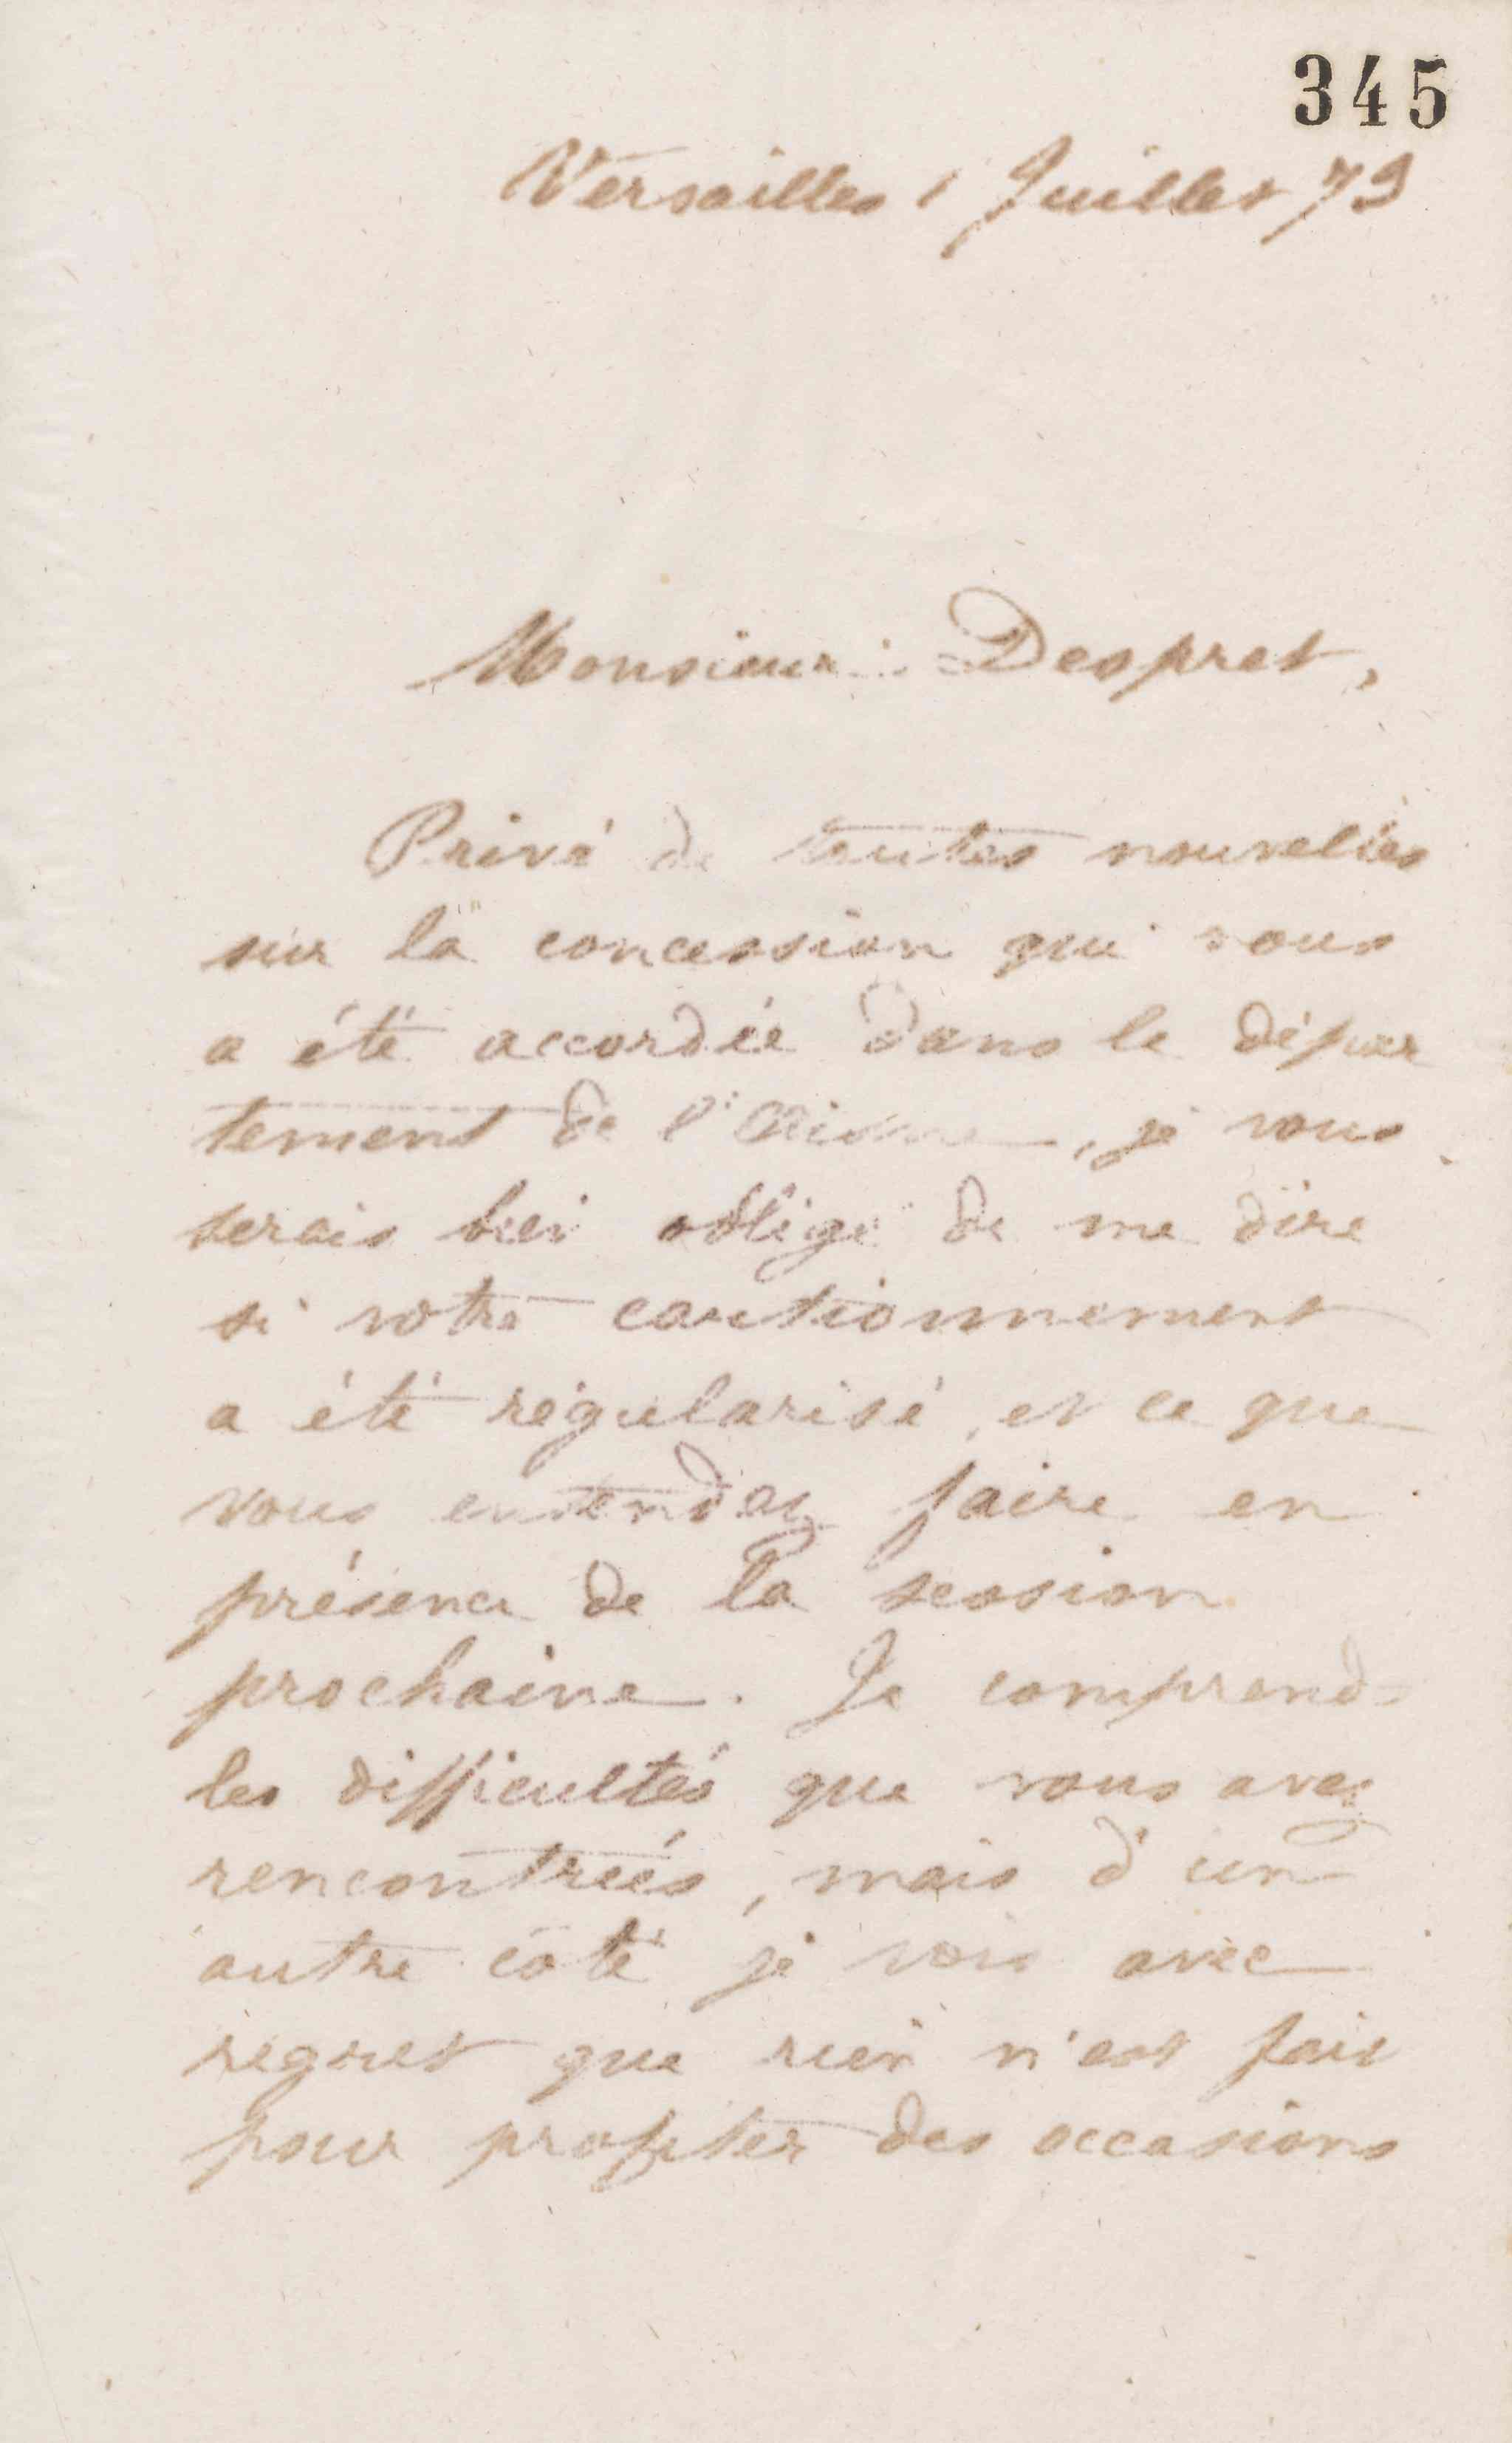 345
Versailles 1 Juillet 73
Monsieur Despret,
Privé de toutes nouvelles
sur la concession qui vous
a été accordée dans le dépar
tement de l'Aisne, je vous
serais bien obligé de me dire
si votre cautionnement
a été régularisé, et ce que
vous entendez faire en
présence de la session
prochaine. Je comprends
les difficultés que vous avez
rencontrées, mais d'un
autre côté je vois avec
regret que rien n'est fait
pour profiter des occasions